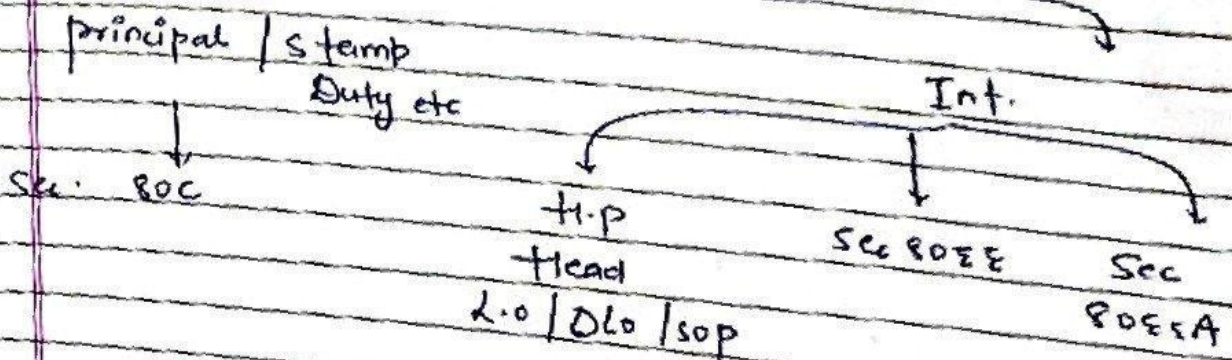 principal / Stamp
Duty etc
Int.
Sec. 80C
H.P
Head
L.O / DLO / SOP
Sec 80EE
Sec
80EEA